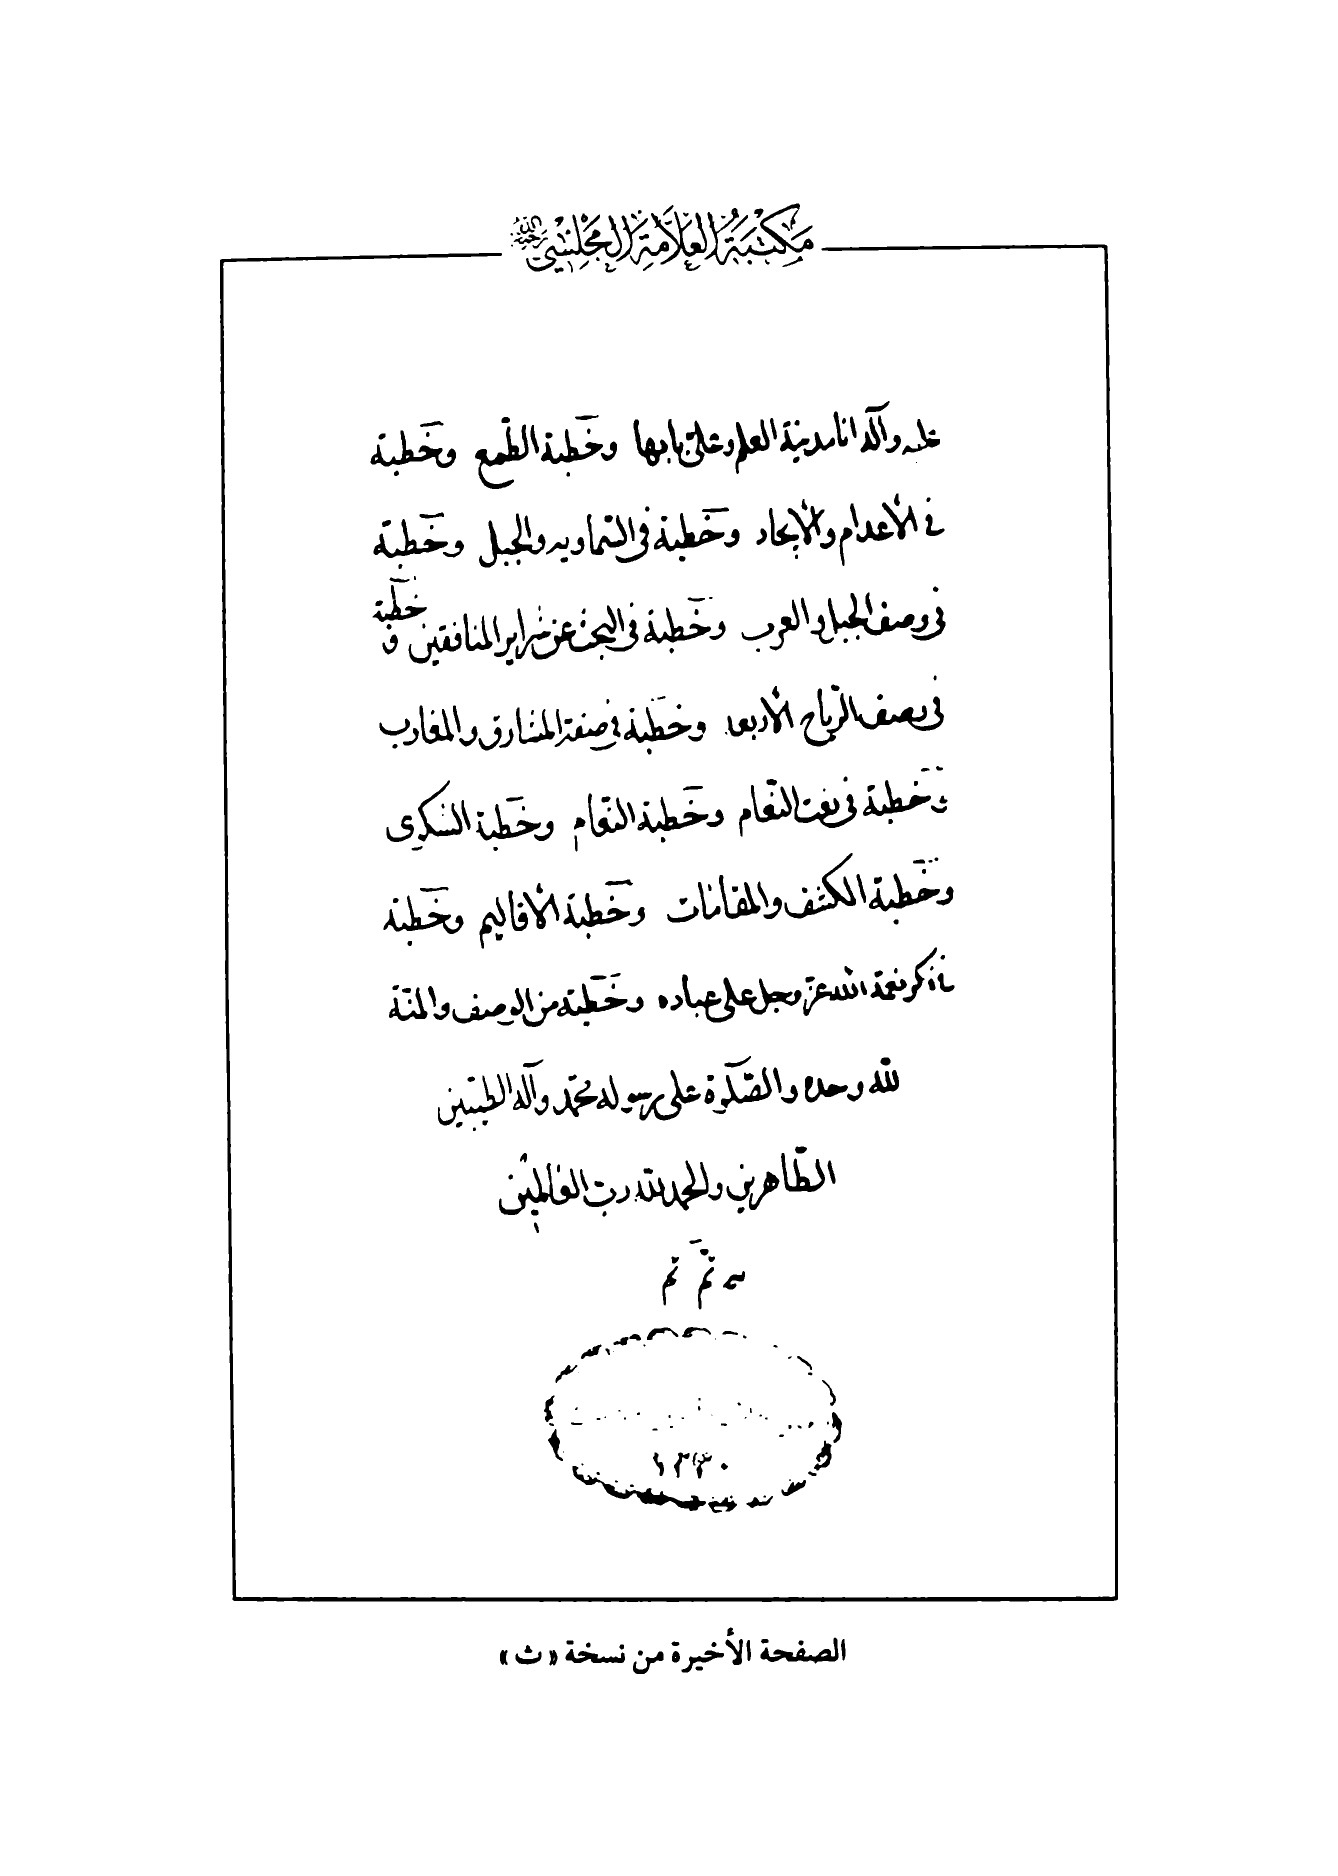 مكتبة العلامة المجلسي رحمه الله
عليه وآله انا مدينة العلم وعلى بابها وخطبة الطمع وخطبة
في الأعدام والإيجاد وخطبة في والجبل وخطبة
في وصف الجبل والعرب وخطبة في البحث عن سراير المنافقين و خطبة
في وصف الرياح الأربعه وخطبة في صفة المشارق والمغارب
وخطبة في نعت النعام وخطبة النعام وخطبة
وخطبة الكشف والمقامات وخطبة الأقاليم وخطبة
في ذكر نعمة الله عز وجل على عباده وخطبة من الوصف والمنة
لله وحده والصلوة على رسوله محمد وآله الطيبين
الطاهرين والحمد لله رب العالمين
تم تم
١٣٣٠
الصفحة الأخيرة من نسخة « ث »